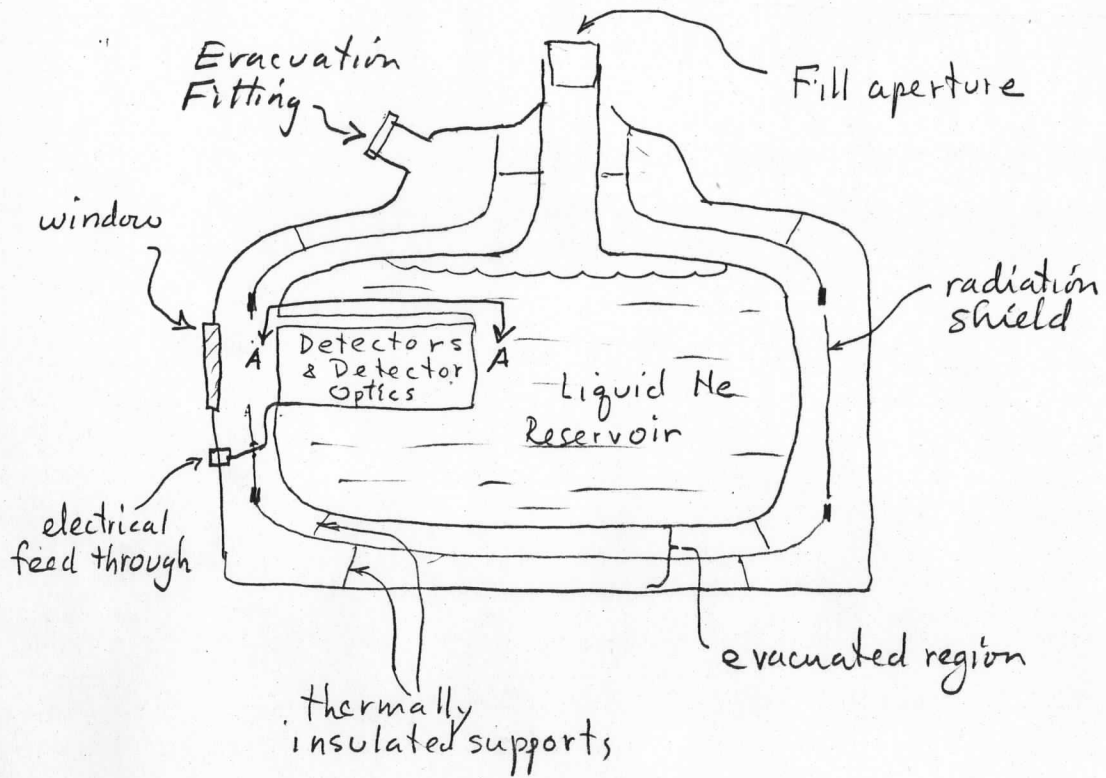 Evacuation
Fitting
Fill aperture
window
radiation
shield
A
A
Detectors
& Detector
Optics
Liquid Ne
Reservoir
electrical
feed through
evacuated region
thermally
insulated supports